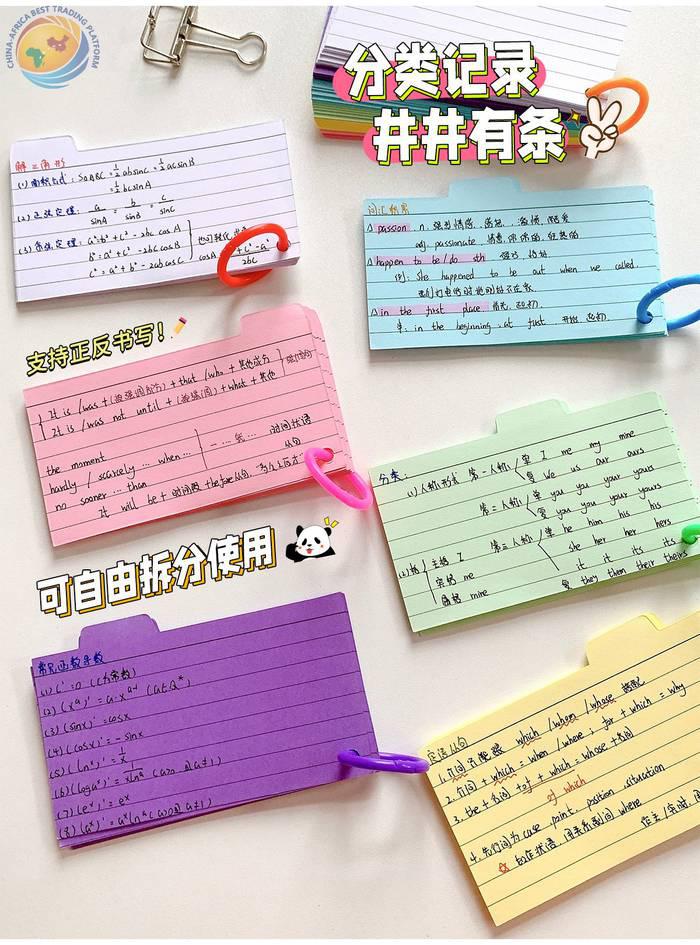 CHINA-AFRICA BEST TRADING PLATFORM
分类记录
井井有条
解三角形
(1) 面积公式: S△ABC = ½ absinC = ½ acsinB
= ½ bcsinA
(2) 正弦定理: a/sinA = b/sinB = c/sinC
(3) 余弦定理: a²=b²+c²-2bc cosA
b²=a²+c²-2ac cosB
c²=a²+b²-2abcosC
词汇积累
△ passion n. 强烈情感
eg. passionate
△ happen to be/do sth
例: She happened to be out when we called.
△ in the first place 首先, 起初
in the beginning, at first 开始, 起初
支持正反书写!
It is /was + (被强调成分) + that /who + 其他成分
It is /was not until + (被强调) + what + 其他
the moment
hardly / scarcely ... when ...
no sooner ... than
一 ... 就 ... 时间状语
从句
It will be + 时间段 + before从句
分类
(1) 人称形式 第一人称 单 I me my mine
复 We us our ours
第二人称 单 you you your yours
复 you you your yours
第三人称 单 he him his his
she her her hers
it it its its
复 they them their theirs
(2) 格 主格 I
宾格 me
mine
可自由拆分使用
常见函数导数
(1) C'=0 (C为常数)
(2) (xᵃ)'=a·xᵃ⁻¹ (a∈Q*)
(3) (sinx)'=cosx
(4) (cosx)'=-sinx
(5) (lnx)'=1/x
(6) (logax)'=1/xlna (a>0且a≠1)
(7) (eˣ)'=eˣ
(8) (aˣ)'=aˣlna (a>0且a≠1)
定语从句
which /whom /whose
2. 介词 + which = when /where; for + which = why
3. the + 名词 + of + which = whose + 名词
of which
4. 先行词为 case, point, position, situation
的定状语, 用关系副词 where